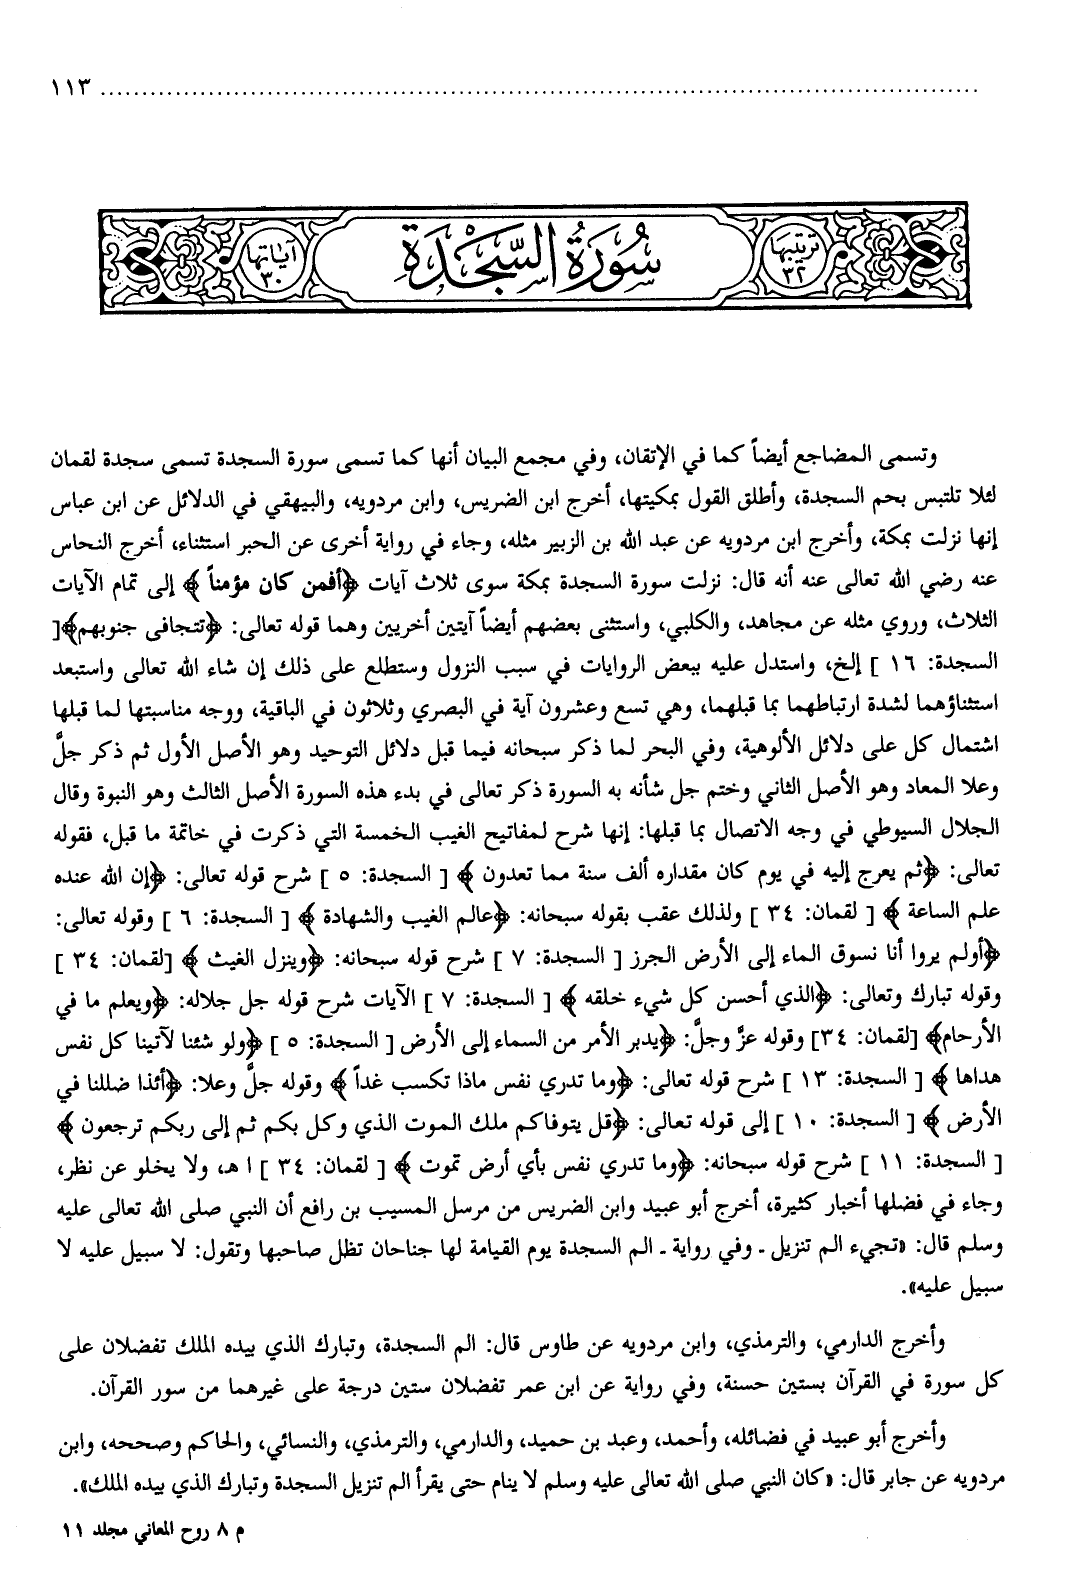 ١١٣
ترتيبها ٣٢
سُورَةُ السَّجْدَة
آياتها ٣٠
وتسمى المضاجع أيضاً كما في الإتقان، وفي مجمع البيان أنها كما تسمى سورة السجدة تسمى سجدة لقمان
لئلا تلتبس بحم السجدة، وأطلق القول بمكيتها، أخرج ابن الضريس، وابن مردويه، والبيهقي في الدلائل عن ابن عباس
إنها نزلت بمكة، وأخرج ابن مردويه عن عبد الله بن الزبير مثله، وجاء في رواية أخرى عن الحبر استثناء، أخرج النحاس
عنه رضي الله تعالى عنه أنه قال: نزلت سورة السجدة بمكة سوى ثلاث آيات ﴿أفمن كان مؤمناً ﴾ إلى تمام الآيات
الثلاث، وروي مثله عن مجاهد، والكلبي، واستثنى بعضهم أيضاً آيتين أخريين وهما قوله تعالى: ﴿تتجافى جنوبهم﴾[
السجدة: ١٦ ] إلخ، واستدل عليه ببعض الروايات في سبب النزول وستطلع على ذلك إن شاء الله تعالى واستبعد
استثناؤهما لشدة ارتباطهما بما قبلهما، وهي تسع وعشرون آية في البصري وثلاثون في الباقية، ووجه مناسبتها لما قبلها
اشتمال كل على دلائل الألوهية، وفي البحر لما ذكر سبحانه فيما قبل دلائل التوحيد وهو الأصل الأول ثم ذكر جلَّ
وعلا المعاد وهو الأصل الثاني وختم جل شأنه به السورة ذكر تعالى في بدء هذه السورة الأصل الثالث وهو النبوة وقال
الجلال السيوطي في وجه الاتصال بما قبلها: إنها شرح لمفاتيح الغيب الخمسة التي ذكرت في خاتمة ما قبل، فقوله
تعالى: ﴿ثم يعرج إليه في يوم كان مقداره ألف سنة مما تعدون ﴾ [ السجدة: ٥ ] شرح قوله تعالى: ﴿إن الله عنده
علم الساعة ﴾ [ لقمان: ٣٤ ] ولذلك عقب بقوله سبحانه: ﴿عالم الغيب والشهادة ﴾ [ السجدة: ٦ ] وقوله تعالى:
﴿أولم يروا أنا نسوق الماء إلى الأرض الجرز [ السجدة: ٧ ] شرح قوله سبحانه: ﴿وينزل الغيث ﴾ [لقمان: ٣٤ ]
وقوله تبارك وتعالى: ﴿الذي أحسن كل شيء خلقه ﴾ [ السجدة: ٧ ] الآيات شرح قوله جل جلاله: ﴿ويعلم ما في
الأرحام﴾ [لقمان: ٣٤] وقوله عزَّ وجلَّ: ﴿يدبر الأمر من السماء إلى الأرض [ السجدة: ٥ ] ﴿ولو شئنا لآتينا كل نفس
هداها ﴾ [ السجدة: ١٣ ] شرح قوله تعالى: ﴿وما تدري نفس ماذا تكسب غداً ﴾ وقوله جلَّ وعلا: ﴿أئذا ضللنا في
الأرض ﴾ [ السجدة: ١٠ ] إلى قوله تعالى: ﴿قل يتوفاكم ملك الموت الذي وكل بكم ثم إلى ربكم ترجعون ﴾
[ السجدة: ١١ ] شرح قوله سبحانه: ﴿وما تدري نفس بأي أرض تموت ﴾ [ لقمان: ٣٤ ] ا هـ، ولا يخلو عن نظر،
وجاء في فضلها أخبار كثيرة، أخرج أبو عبيد وابن الضريس من مرسل المسيب بن رافع أن النبي صلى الله تعالى عليه
وسلم قال: «تجيء الم تنزيل ـ وفي رواية ـ الم السجدة يوم القيامة لها جناحان تظل صاحبها وتقول: لا سبيل عليه لا
سبيل عليه».
وأخرج الدارمي، والترمذي، وابن مردويه عن طاوس قال: الم السجدة، وتبارك الذي بيده الملك تفضلان على
كل سورة في القرآن بستين حسنة، وفي رواية عن ابن عمر تفضلان ستين درجة على غيرهما من سور القرآن.
وأخرج أبو عبيد في فضائله، وأحمد، وعبد بن حميد، والدارمي، والترمذي، والنسائي، والحاكم وصححه، وابن
مردويه عن جابر قال: «كان النبي صلى الله تعالى عليه وسلم لا ينام حتى يقرأ الم تنزيل السجدة وتبارك الذي بيده الملك».
م ٨ روح المعاني مجلد ١١